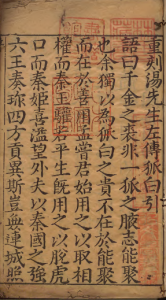 重刻湯先生左傳狐白引
語曰千金之裘非一狐之腋志能聚
也余獨以為狐白之貴不在於能聚
而在於善用孟嘗君始用之以取相
權而秦王驩平生既用之以脫虎
口而秦姬喜溢望外夫以秦國之強
六王奏珍四方貢異斯豈無連城照